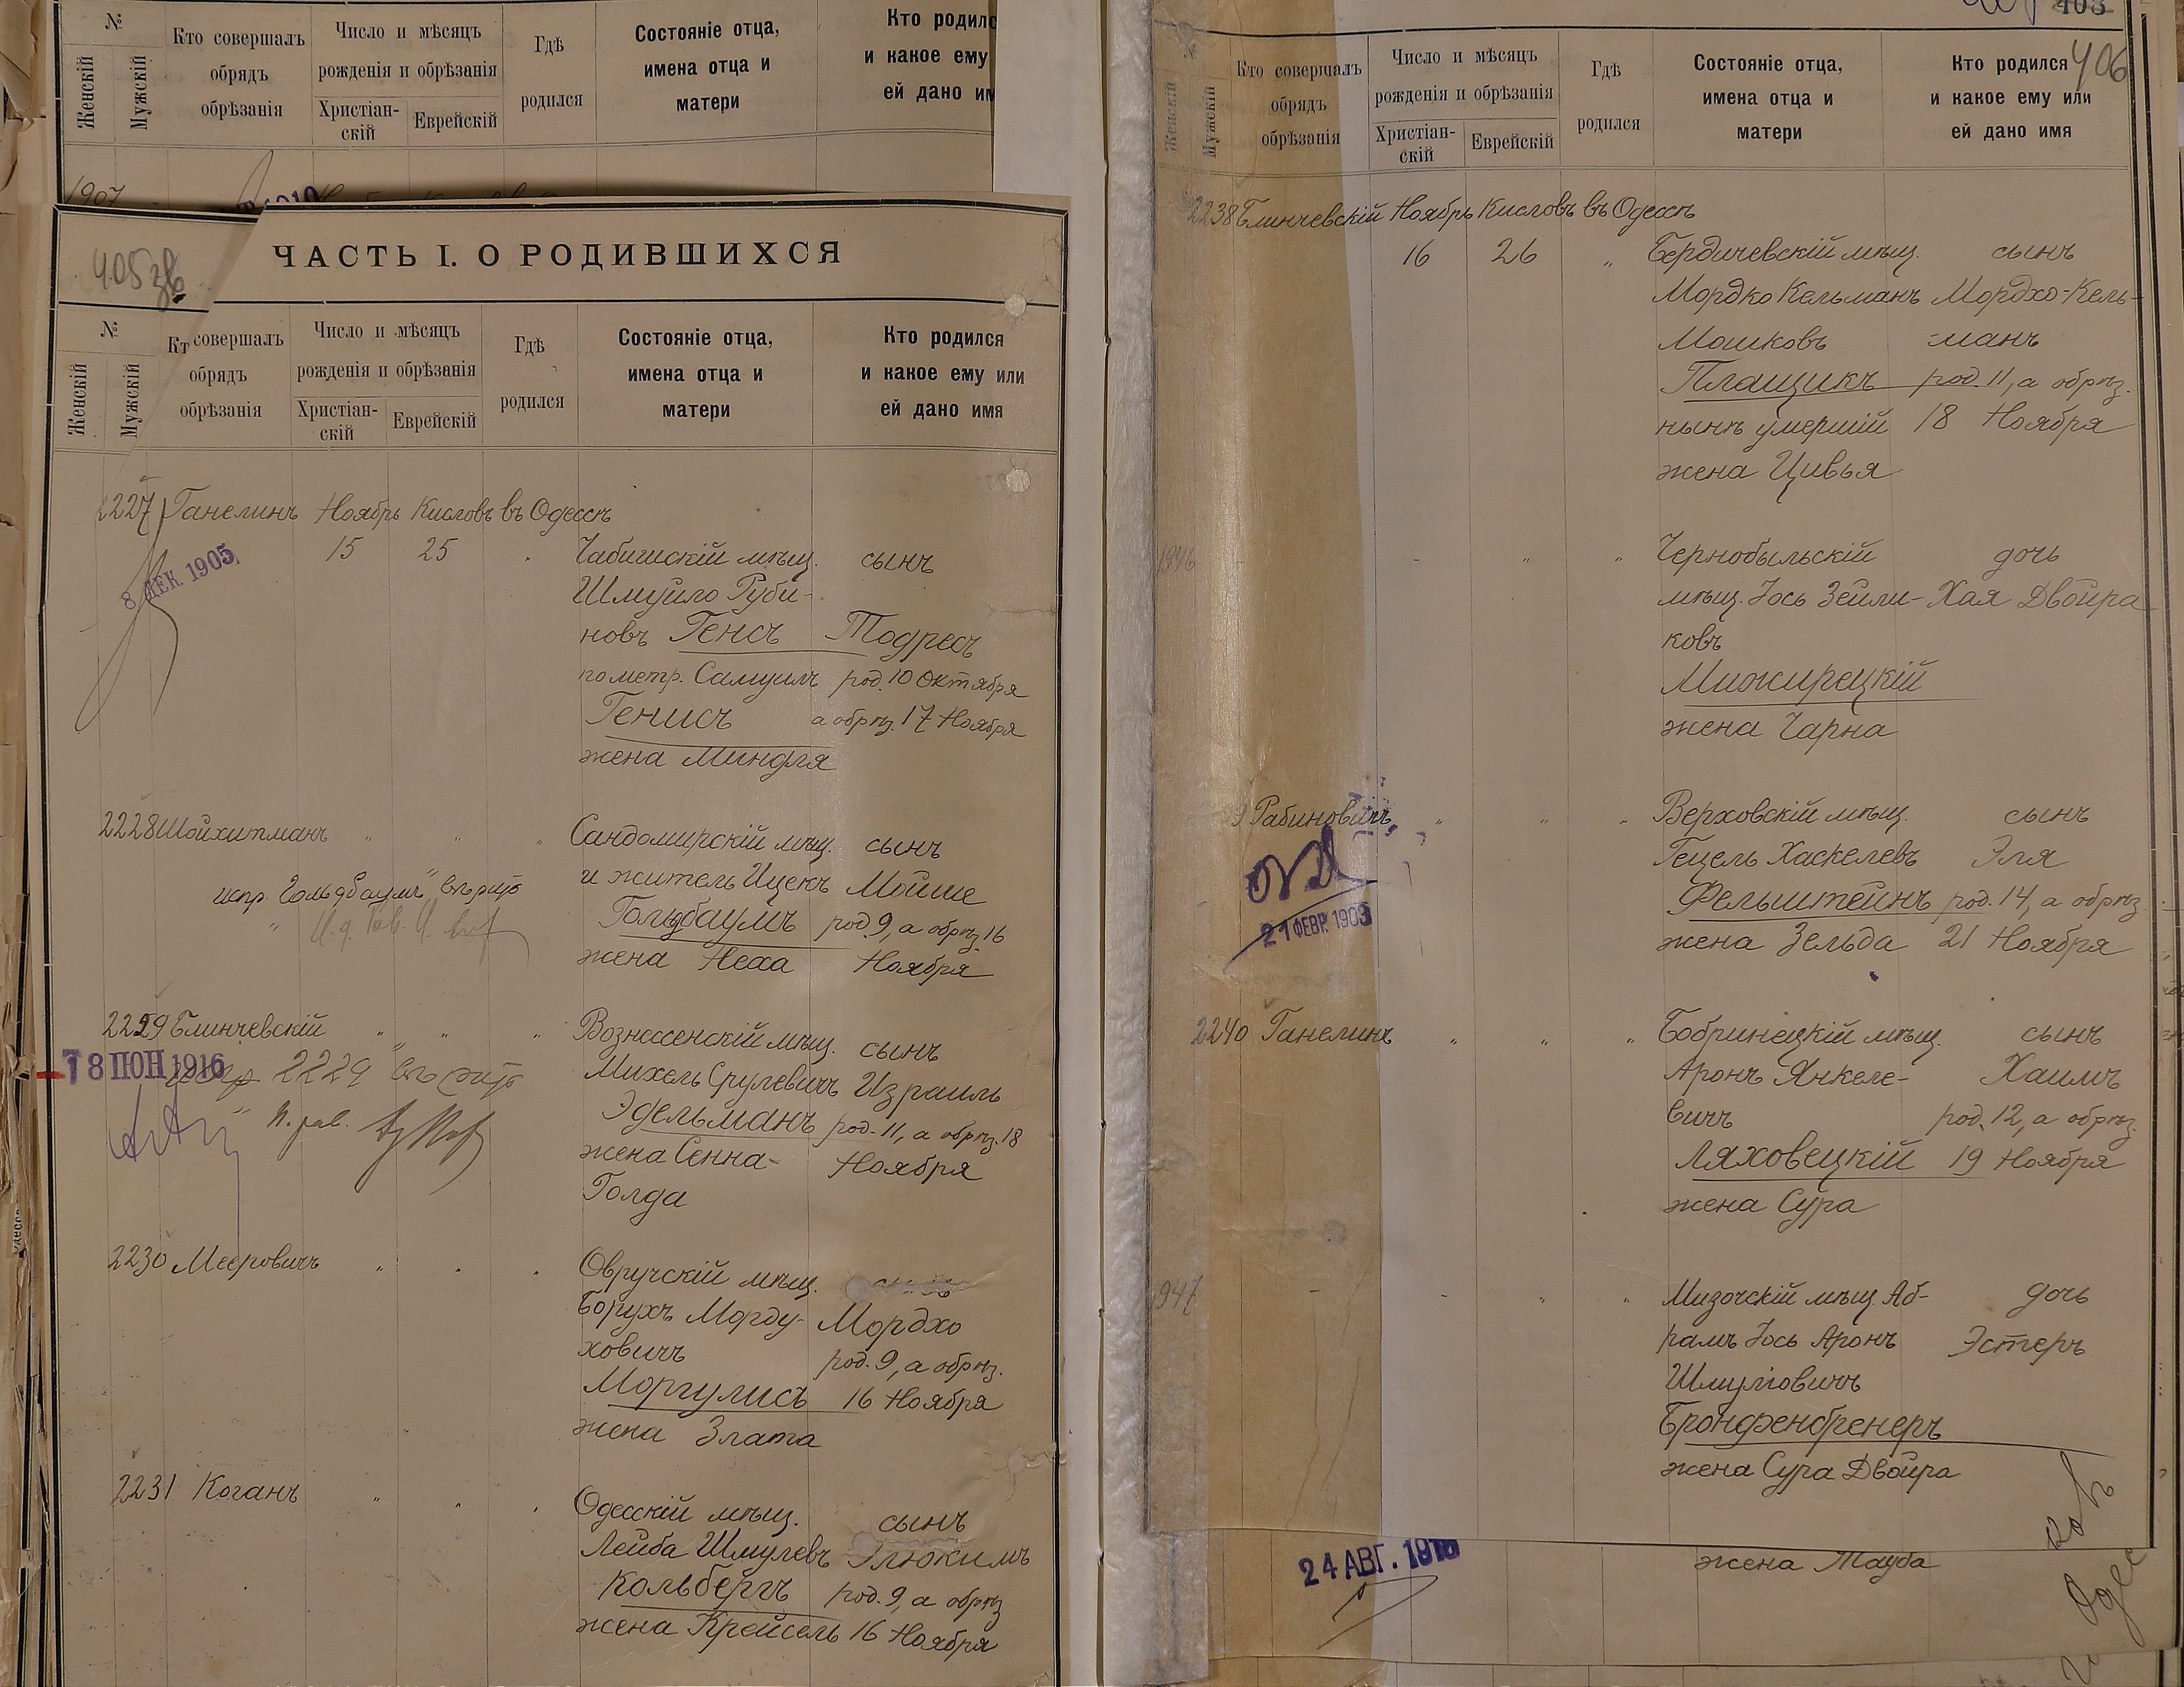 №
Женскій
Мужскій
Кто совершалъ
обрядъ
обрѣзанія
Число и мѣсяцъ
рожденія и обрѣзанія
Христіан-
скій
Еврейскій
Гдѣ
родился
Состояніе отца,
имена отца и
матери
Кто родилс
и какое ему
ей дано им
1907
405 зв
ЧАСТЬ I. О РОДИВШИХСЯ
№
Женскій
Мужскій
Кт совершалъ
обрядъ
обрѣзанія
Число и мѣсяцъ
рожденія и обрѣзанія
Христіан-
скій
Еврейскій
Гдѣ
родился
Состояніе отца,
имена отца и
матери
Кто родился
и какое ему или
ей дано имя
2227 Ганелинъ Ноябрь Кисловъ въ Одессѣ
8 ДЕК. 1905
15 25 Чабишскій мѣщ. сынъ
Шмуйло Руби-
новъ Генсъ Тодресъ
по метр. Самуилъ род. 10 Октября
Генисъ а обрѣз. 17 Ноября
жена Миндля
2228 Шойхитманъ " " " Сандомирскій мѣщ. сынъ
испр. "Гольдбаумъ" вѣрно
и житель Ицекъ Мойше
Гольдбаумъ род. 9, а обрѣз. 16
жена Неха Ноября
2229 Блинчевскій " " " Вознесенскій мѣщ. сынъ
18 ИЮН 1916
испр 2229 вѣрно
Михель Срулевичъ Израиль
Эдельманъ род. 11, а обрѣз. 18
жена Сенна- Ноября
Голда
2230 Мееровичъ " " " Овручскій мѣщ. сынъ
Борухъ Морду- Мордхо
ховичъ род. 9, а обрѣз.
Моргулисъ 16 Ноября
жена Злата
2231 Коганъ " " " Одесскій мѣщ. сынъ
Лейба Шмулевъ Элюкимъ
Кольбергъ род. 9, а обрѣз
жена Крейсель 16 Ноября
403
406
№
Женскій
Мужскій
Кто совершалъ
обрядъ
обрѣзанія
Число и мѣсяцъ
рожденія и обрѣзанія
Христіан-
скій
Еврейскій
Гдѣ
родился
Состояніе отца,
имена отца и
матери
Кто родился
и какое ему или
ей дано имя
2238 Блинчевскій Ноябрь Кисловъ въ Одессѣ
16 26 " Бердичевскій мѣщ. сынъ
Мордко Кельманъ Мордхо-Кель-
Мошковъ -манъ
Плащикъ род. 11, а обрѣз.
нынѣ умершій 18 Ноября
жена Цивья
1946 - " " Чернобыльскій дочь
мѣщ. Іось Зейли- Хая Двойра
ковъ
Мижирецкій
жена Чарна
9 Рабиновичъ " " " Верховскій мѣщ. сынъ
Гецель Хаскелевъ Эля
21 ФЕВР. 1909
Фельштейнъ род. 14, а обрѣз
жена Зельда 21 Ноября
2240 Ганелинъ " " " Бобринецкій мѣщ. сынъ
Аронъ Янкеле- Хаимъ
вичъ род. 12, а обрѣз.
Ляховецкій 19 Ноября
жена Сура
1947 - - " " Мизочскій мѣщ. Аб- дочь
рамъ Іось Аронъ Эстеръ
Шмулiовичъ
Бронфенбренеръ
жена Сура Двойра
24 АВГ. 1910
жена Тауба